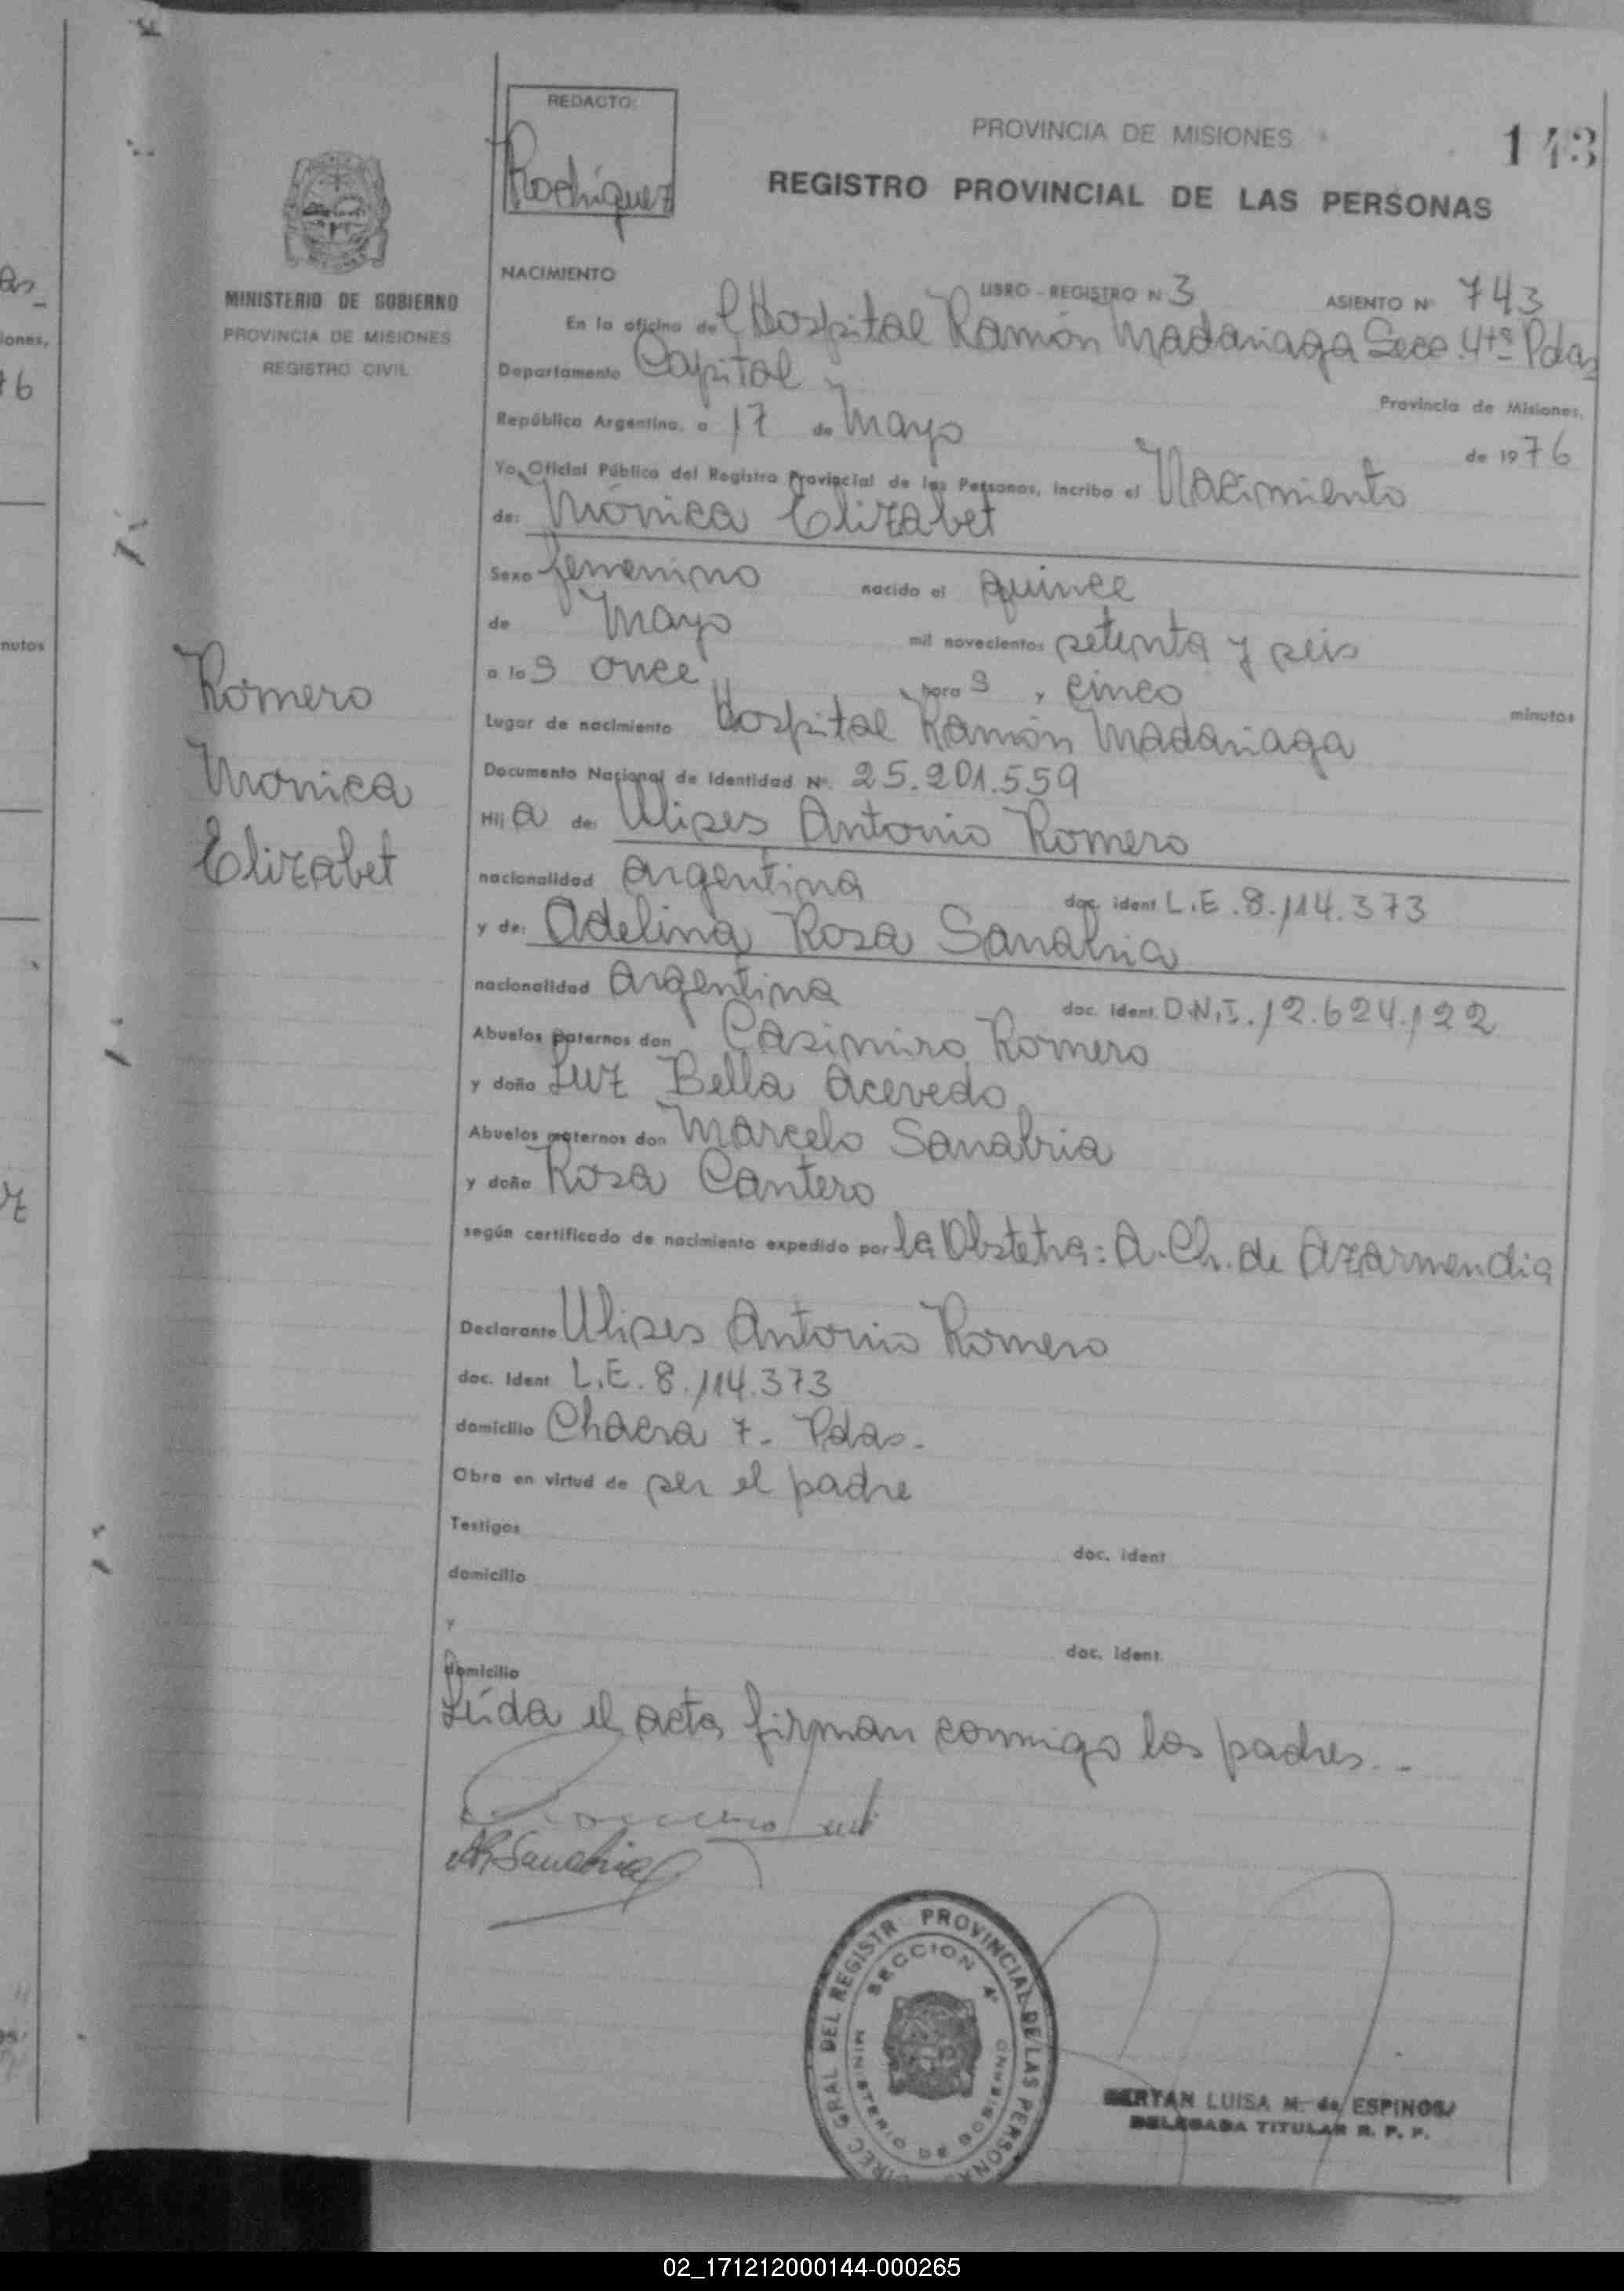 REDACTO:
Rodríguez
PROVINCIA DE MISIONES
143
REGISTRO PROVINCIAL DE LAS PERSONAS
MINISTERIO DE GOBIERNO
PROVINCIA DE MISIONES
REGISTRO CIVIL
NACIMIENTO
LIBRO - REGISTRO N 3 ASIENTO Nº 743
En la oficina del Hospital Ramón Madariaga Secc. 4ta Pdas
Departamento Capital
Provincia de Misiones,
República Argentina, a 17 de Mayo de 1976
Yo, Oficial Público del Registro Provincial de las Personas, incribo el Nacimiento
de: Mónica Elizabet
Sexo femenino nacido el quince
de Mayo mil novecientos setenta y seis
a las once horas, cinco minutos
Lugar de nacimiento Hospital Ramón Madariaga
Documento Nacional de Identidad Nº. 25.201.559
Hija de: Ulises Antonio Romero
nacionalidad argentina doc. ident L.E. 8.114.373
y de: Adelina Rosa Sanabria
nacionalidad argentina doc. ident. D.N.I. 12.624.122
Abuelos paternos don Casimiro Romero
y doña Luz Bella Acevedo
Abuelos maternos don Marcelo Sanabria
y doña Rosa Cantero
según certificado de nacimiento expedido por la Obstetra: A. Ch. de Azarmendia
Declarante Ulises Antonio Romero
doc. Ident L.E. 8.114.373
domicilio Chacra 7- Pdas.
Obra en virtud de ser el padre
Testigos doc. ident
domicilio
y doc. ident.
domicilio
Leída el acta firman conmigo los padres.-
Romero
Mónica
Elizabet
A R Sanabria
DIREC GRAL DEL REGISTR PROVINCIAL DE LAS PERSONAS
SECCION 4ª
MINISTERIO DE GOBIERNO
BERTAN LUISA M. de ESPINOSA
DELEGADA TITULAR R. P. P.
02_171212000144-000265